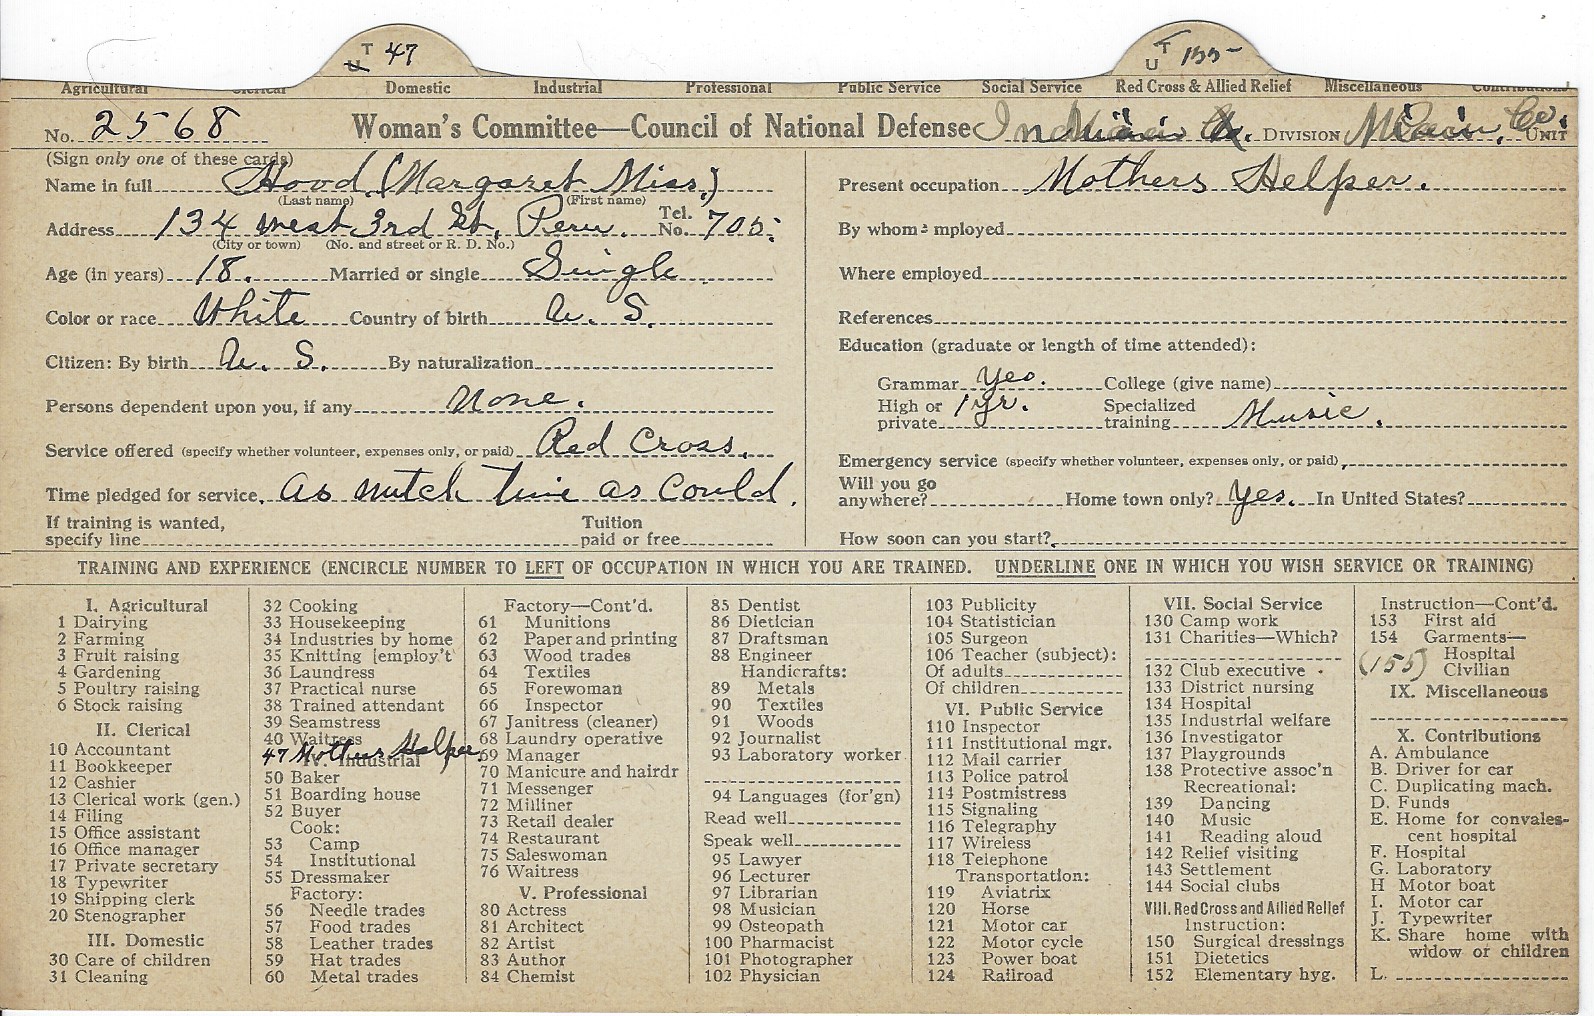 T
U 47
T
U 155
Agricultural Clerical Domestic Industrial Professional Public Service Social Service Red Cross & Allied Relief Miscellaneous Contributions
No. 2568 Woman's Committee—Council of National Defense Indiana DIVISION Co. UNIT
(Sign only one of these cards)
Name in full Hood (Margaret Miss.)
(Last name) (First name)
Address 134 West 3rd St. Peru. Tel. No. 705.
(City or town) (No. and street or R. D. No.)
Age (in years) 18. Married or single Single
Color or race White Country of birth U. S.
Citizen: By birth U. S. By naturalization
Persons dependent upon you, if any None.
Service offered (specify whether volunteer, expenses only, or paid) Red Cross.
Time pledged for service. As mutch time as Could.
If training is wanted, specify line Tuition paid or free
Present occupation Mothers Helper.
By whom employed
Where employed
References
Education (graduate or length of time attended):
Grammar Yes. College (give name)
High or private 1 yr. Specialized training Music.
Emergency service (specify whether volunteer, expenses only, or paid)
Will you go anywhere? Home town only? Yes. In United States?
How soon can you start?
TRAINING AND EXPERIENCE (ENCIRCLE NUMBER TO LEFT OF OCCUPATION IN WHICH YOU ARE TRAINED. UNDERLINE ONE IN WHICH YOU WISH SERVICE OR TRAINING)
I. Agricultural
1 Dairying
2 Farming
3 Fruit raising
4 Gardening
5 Poultry raising
6 Stock raising
II. Clerical
10 Accountant
11 Bookkeeper
12 Cashier
13 Clerical work (gen.)
14 Filing
15 Office assistant
16 Office manager
17 Private secretary
18 Typewriter
19 Shipping clerk
20 Stenographer
III. Domestic
30 Care of children
31 Cleaning
32 Cooking
33 Housekeeping
34 Industries by home
35 Knitting [employ't
36 Laundress
37 Practical nurse
38 Trained attendant
39 Seamstress
40 Waitress
47 Mothers Helper
IV. Industrial
50 Baker
51 Boarding house
52 Buyer
Cook:
53 Camp
54 Institutional
55 Dressmaker
Factory:
56 Needle trades
57 Food trades
58 Leather trades
59 Hat trades
60 Metal trades
Factory—Cont'd.
61 Munitions
62 Paper and printing
63 Wood trades
64 Textiles
65 Forewoman
66 Inspector
67 Janitress (cleaner)
68 Laundry operative
69 Manager
70 Manicure and hairdr
71 Messenger
72 Milliner
73 Retail dealer
74 Restaurant
75 Saleswoman
76 Waitress
V. Professional
80 Actress
81 Architect
82 Artist
83 Author
84 Chemist
85 Dentist
86 Dietician
87 Draftsman
88 Engineer
Handicrafts:
89 Metals
90 Textiles
91 Woods
92 Journalist
93 Laboratory worker
94 Languages (for'gn)
Read well
Speak well
95 Lawyer
96 Lecturer
97 Librarian
98 Musician
99 Osteopath
100 Pharmacist
101 Photographer
102 Physician
103 Publicity
104 Statistician
105 Surgeon
106 Teacher (subject):
Of adults
Of children
VI. Public Service
110 Inspector
111 Institutional mgr.
112 Mail carrier
113 Police patrol
114 Postmistress
115 Signaling
116 Telegraphy
117 Wireless
118 Telephone
Transportation:
119 Aviatrix
120 Horse
121 Motor car
122 Motor cycle
123 Power boat
124 Railroad
VII. Social Service
130 Camp work
131 Charities—Which?
132 Club executive
133 District nursing
134 Hospital
135 Industrial welfare
136 Investigator
137 Playgrounds
138 Protective assoc'n
Recreational:
139 Dancing
140 Music
141 Reading aloud
142 Relief visiting
143 Settlement
144 Social clubs
VIII. Red Cross and Allied Relief
Instruction:
150 Surgical dressings
151 Dietetics
152 Elementary hyg.
Instruction—Cont'd.
153 First aid
154 Garments—
Hospital
(155) Civilian
IX. Miscellaneous
X. Contributions
A. Ambulance
B. Driver for car
C. Duplicating mach.
D. Funds
E. Home for convales-
cent hospital
F. Hospital
G. Laboratory
H Motor boat
I. Motor car
J. Typewriter
K. Share home with
widow or children
L.